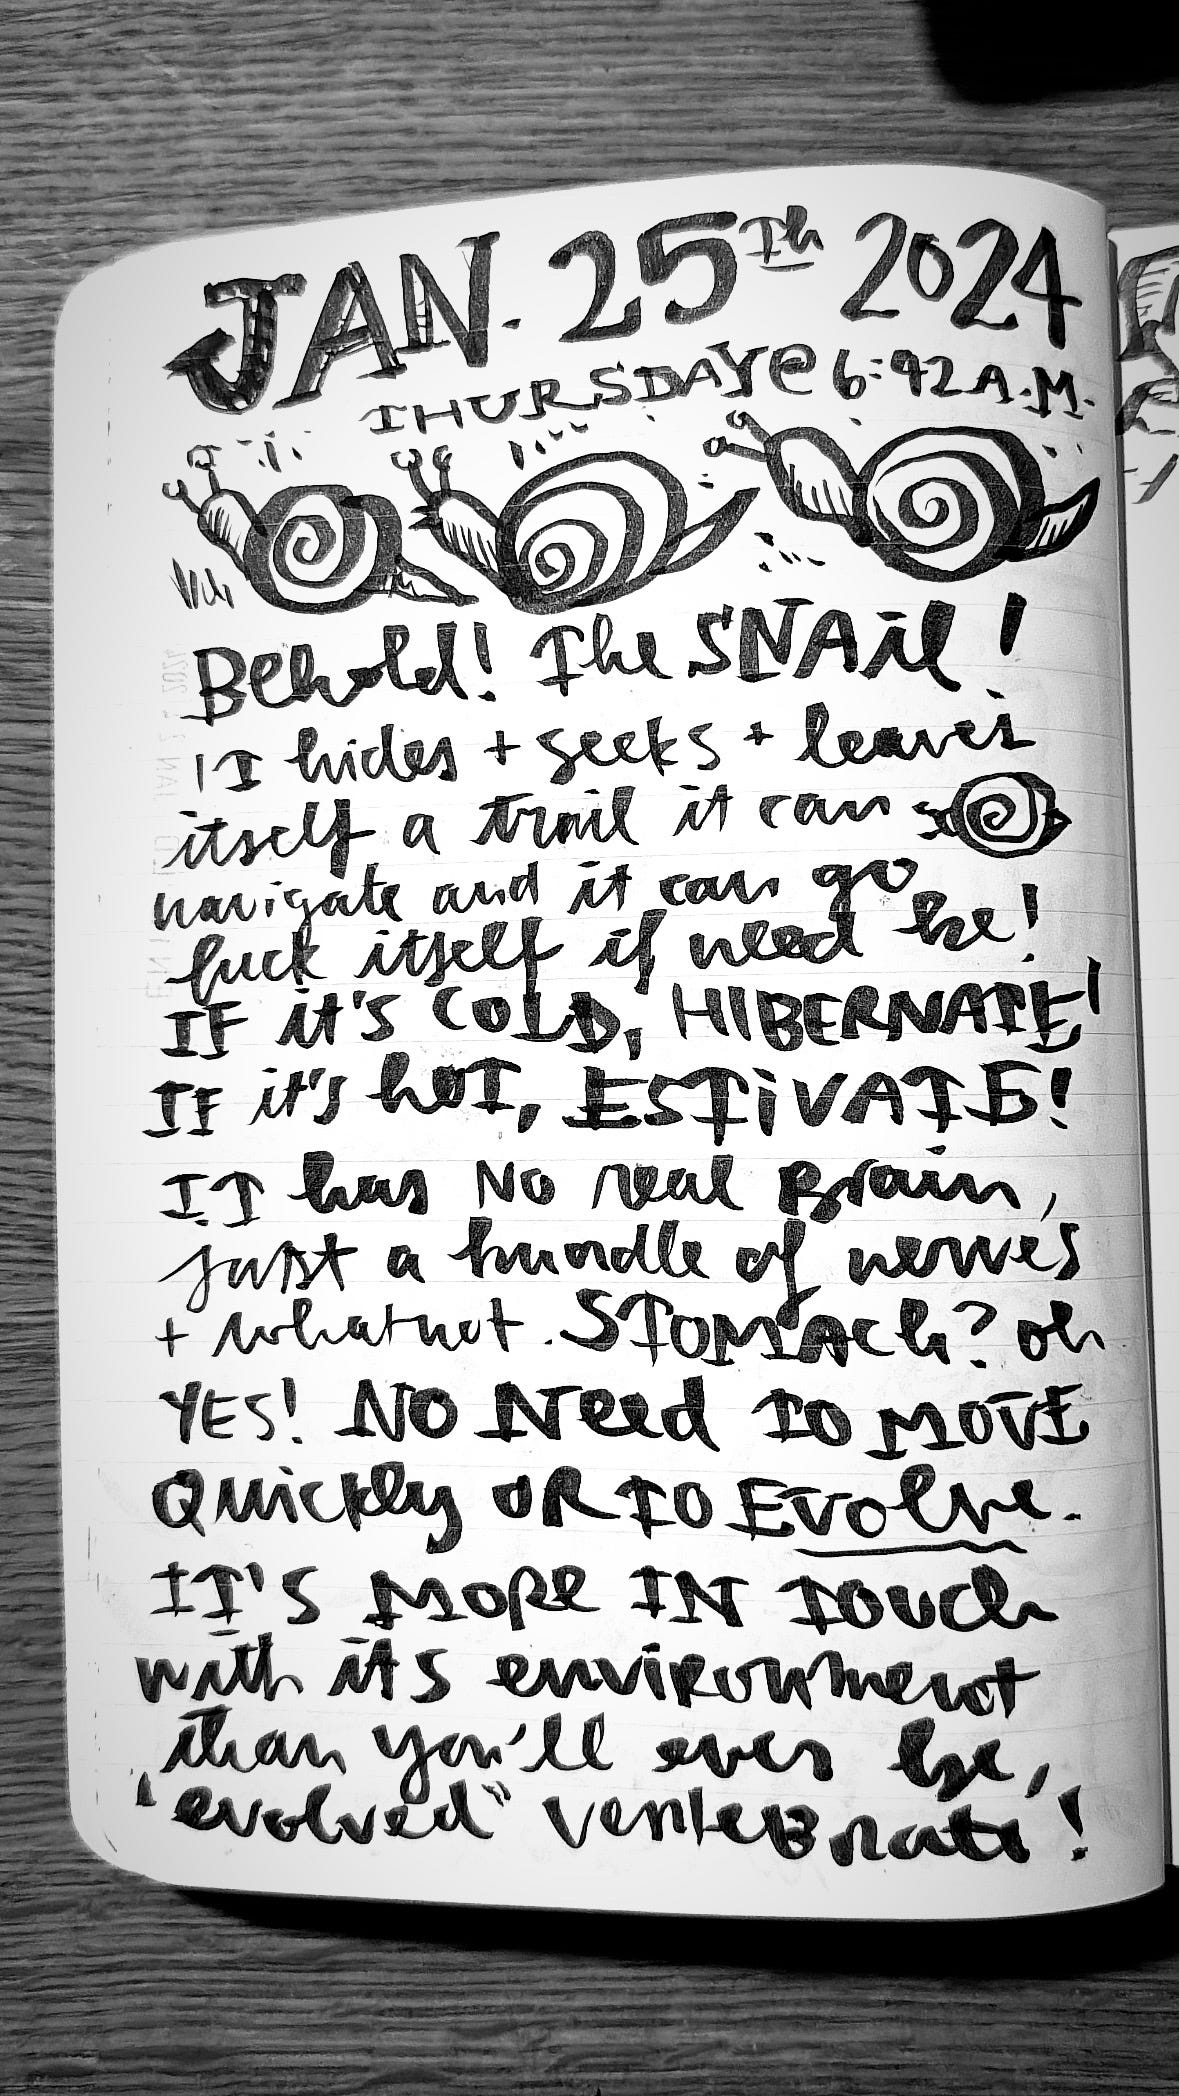 JAN. 25Th 2024
THURSDAY @ 6:42 A.M.
BEhold! The SNAil!
IT hides + seeks + leaves
itself a trail it can
navigate and it can go
fuck itself if need be!
IF it's COLD, HIBERNATE!
IF it's hOT, ESTiVATE!
IT has No real Brain,
just a bundle of nerves
+ whatnot. STOMACh? oh
YES! NO Need TO MOVE
Quickly OR TO Evolve.
IT'S MORe IN TOUch
with its environment
than you'll ever be,
"evolved" verteBrate!